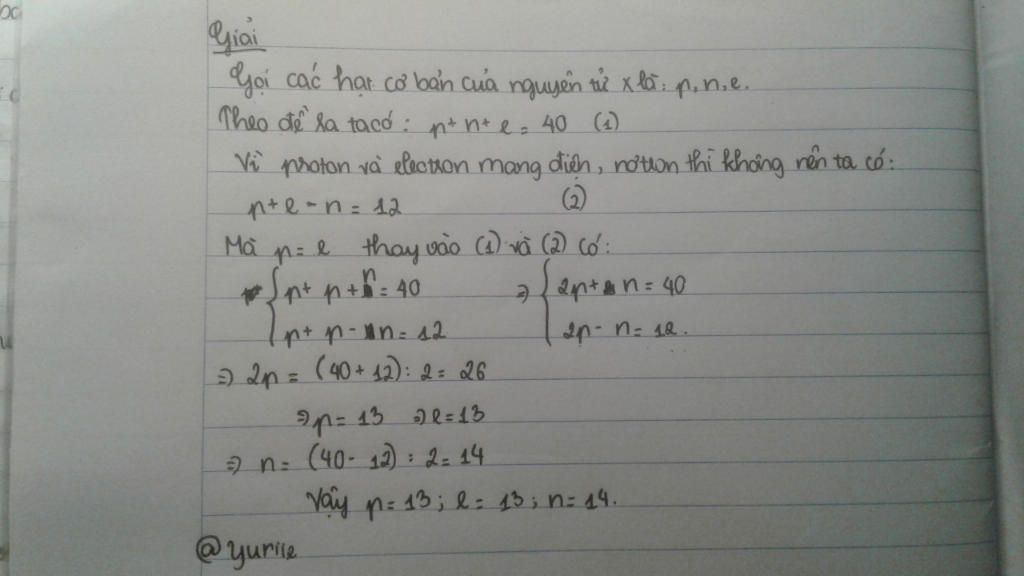 Giải
Gọi các hạt cơ bản của nguyên tử x là: p, n, e.
Theo đề ra ta có: p + n + e = 40 (1)
Vì proton và electron mang điện, nơtron thì không nên ta có:
p + e - n = 12 (2)
Mà p = e thay vào (1) và (2) có:
{ p + p + n = 40 ⇒ { 2p + n = 40
p + p - n = 12 2p - n = 12.
⇒ 2p = (40 + 12) : 2 = 26
⇒ p = 13 ⇒ e = 13
⇒ n = (40 - 12) : 2 = 14
Vậy p = 13; e = 13; n = 14.